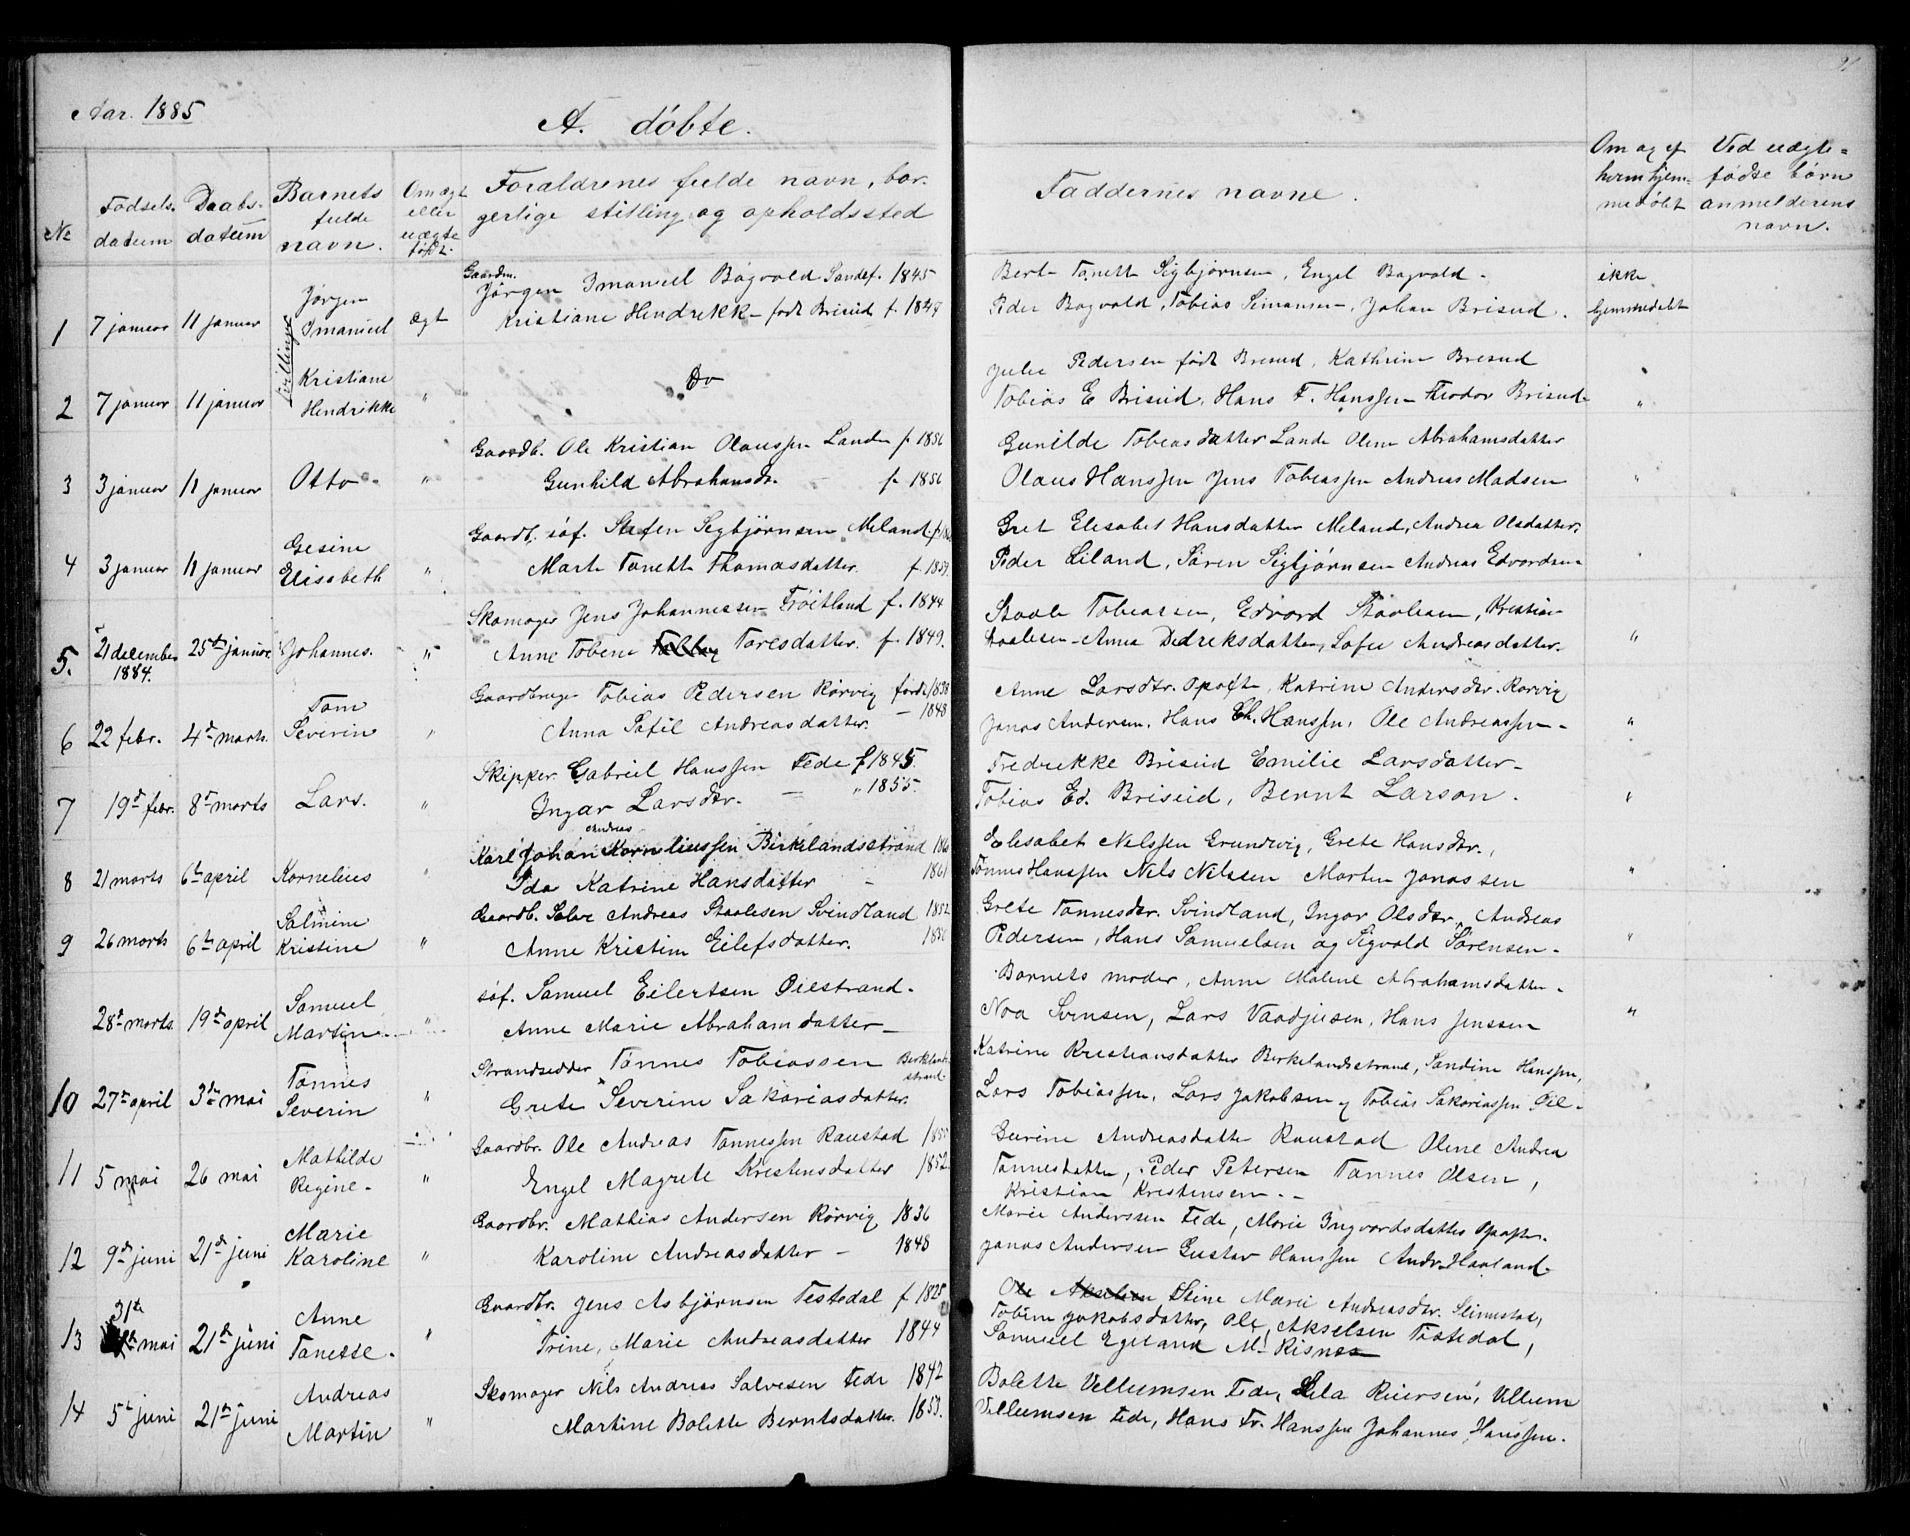 Aar. 1885
A. döbte.
No
Födsels-
datum
Daabs-
datum
Barnets
fulde
navn.
Om ægt
eller
uægte
födt.
Foraldrenes fulde navn, bor-
gerlige stilling og opholdssted
Faddernes navne.
Om og ef
hvem hjem-
medöbt
Ved uægte-
födte börn
anmelderens
navn.
1
7 januar
11 januar
Jörgen
Imanuel
tvillinge
ægt
Gaardm.
Jörgen Imanuel Bagvold Sandef. 1845
Kristiane Hendrikke födt Brisud f. 1849
Berte Tanette Sigbjörnsen, Engel Bagvold
Peder Bagvold, Tobias Simonsen, Johan Brisud.
ikke
hjemmedöbt
2
7 januar
11 januar
Kristiane
Hendrikke
"
Do
Julie Pedersen födt Bresud, Kathrine Bresud
Tobias E Brisud, Hans F. Hanssen Theodor Brisud
"
3
3 januar
11 januar
Otto
"
Gaardb. Ole Kristian Olaussen Lande f. 1856
Gunhild Abrahamsdr. f. 1856
Gunilde Tobiasdatter Lande Olene Abrahamsdatter
Olaus Hanssen Jens Tobiassen Andreas Madsen
"
4
3 januar
11 januar
Gesine
Elisabeth
"
Gaardb. söf. Stefen Sigbjörnsen Meland
Marte Tanette Thomasdatter. f. 1859
Gret Elisabet Hansdatter Meland, Andrea Olsdatter,
Peder Eiland, Sören Sigbjörnsen Andreas Edvardsen
"
5.
21 december
1884.
25de januar
Johannes.
"
Skomager Jens Johannessen Fröitland f. 1844
Anne Tobene Taresdatter. f. 1849.
Staale Tobiassen, Edvard Staalesen, Kristian
Staalesen Anna Dedreksdatter, Sofie Andreasdatter.
"
6
22 febr.
4de marts.
Tom
Severin
"
Gaardbruger Tobias Pedersen Rörvig född 1838
Anna Sofil Andreasdatter. — 1848
Anne Larsdtr. Opoft, Katrine Andersdr. Rorvig
Jonas Andersen, Hans Ch. Hanssen, Ole Andreassen
"
7
19de febr.
8de marts
Lars.
"
Skipper Gabriel Hanssen Fede f 1845.
Ingar Larsdtr. — " 1855.
Fredrekke Brisud Emilie Larsdatter
Tobias Ed. Brisuid, Bernt Larson.
"
8
21 marts
6te april
Kornelius
"
Andreas
Karl Johan Korneliussen Birkelandsstrand
Ida Katrine Hansdatter — 1861
Elesabet Nelssen Grundvig, Grete Hansdtr.,
Tönnes Hanssen Nels Nelssen Morten Jonassen
"
9
26 marts
6te april
Salmine
Kristine
"
Gaardb. Salve Andreas Staalesen Svindland 1852
Anne Kristine Eilefsdatter.
Grete Tönnesdtr. Svindland, Ingar Olsdtr, Andreas
Pedersen, Hans Samuelsen og Sigvald Sörensen
"
28de marts.
19de april
Samuel
Martin
"
söf. Samuel Eilertsen Öiestrand.
Anne Marie Abrahamdatter
Barnets moder, Anne Malene Abrahamsdatter
Noa Svensen, Lars Vaadjusen, Hans Jenssen
"
10
27de april
3de mai
Tönnes
Severin
"
Strandsedder Tönnes Tobiassen Birklands
strand
Grete Severine Sakariasdatter.
Katrine Kristiansdatter Birkelandsstrand, Sandine Hanssen,
Lars Tobiassen, Lars Jakobsen og Tobias Sakariassen Öie
11
5 mai
26 mai
Mathilde
Regine
"
Gaardbr. Ole Andreas Tönnessen Raustad
Engel Magrete Kristensdatter 1852
Gurine Andreasdatter Raustad Olene Andrea
Tönnesdatter, Peder Petersen Tönnes Olsen,
Kristian Krestensen.
12
9de juni
21de juni
Marie
Karoline
"
Gaardbr. Mathias Andersen Rörvig 1836
Karoline Andreasdatter — 1848
Marie Anderssen Fede, Marie Ingvardsdatter Opofte.
Jonas Andersen Gustav Hanssen Andr. Haaland
13
31te
mai
21de juni
Anne
Tanette.
"
Gaardbr. Jens Asbjörnsen Testedal f 1825
Trine Marie Andreasdatter 1844
Ole Akselsen Stine Marie Andreasdtr. Slimestad,
Tobine Jakobsdatter, Ole Akselsen Tistedal,
Samuel Egeland M. Risnes
14
5te juni
21de juni
Andreas
Martin
"
Skomager Nils Andreas Salvesen Fede 1842
Martine Bolette Berntsdatter. 1853.
Bolette Vellumsen Fede, Lela Reiersen, Villum
Villumsen Fede, Hans Fr. Hanssen Johannes Hanssen.